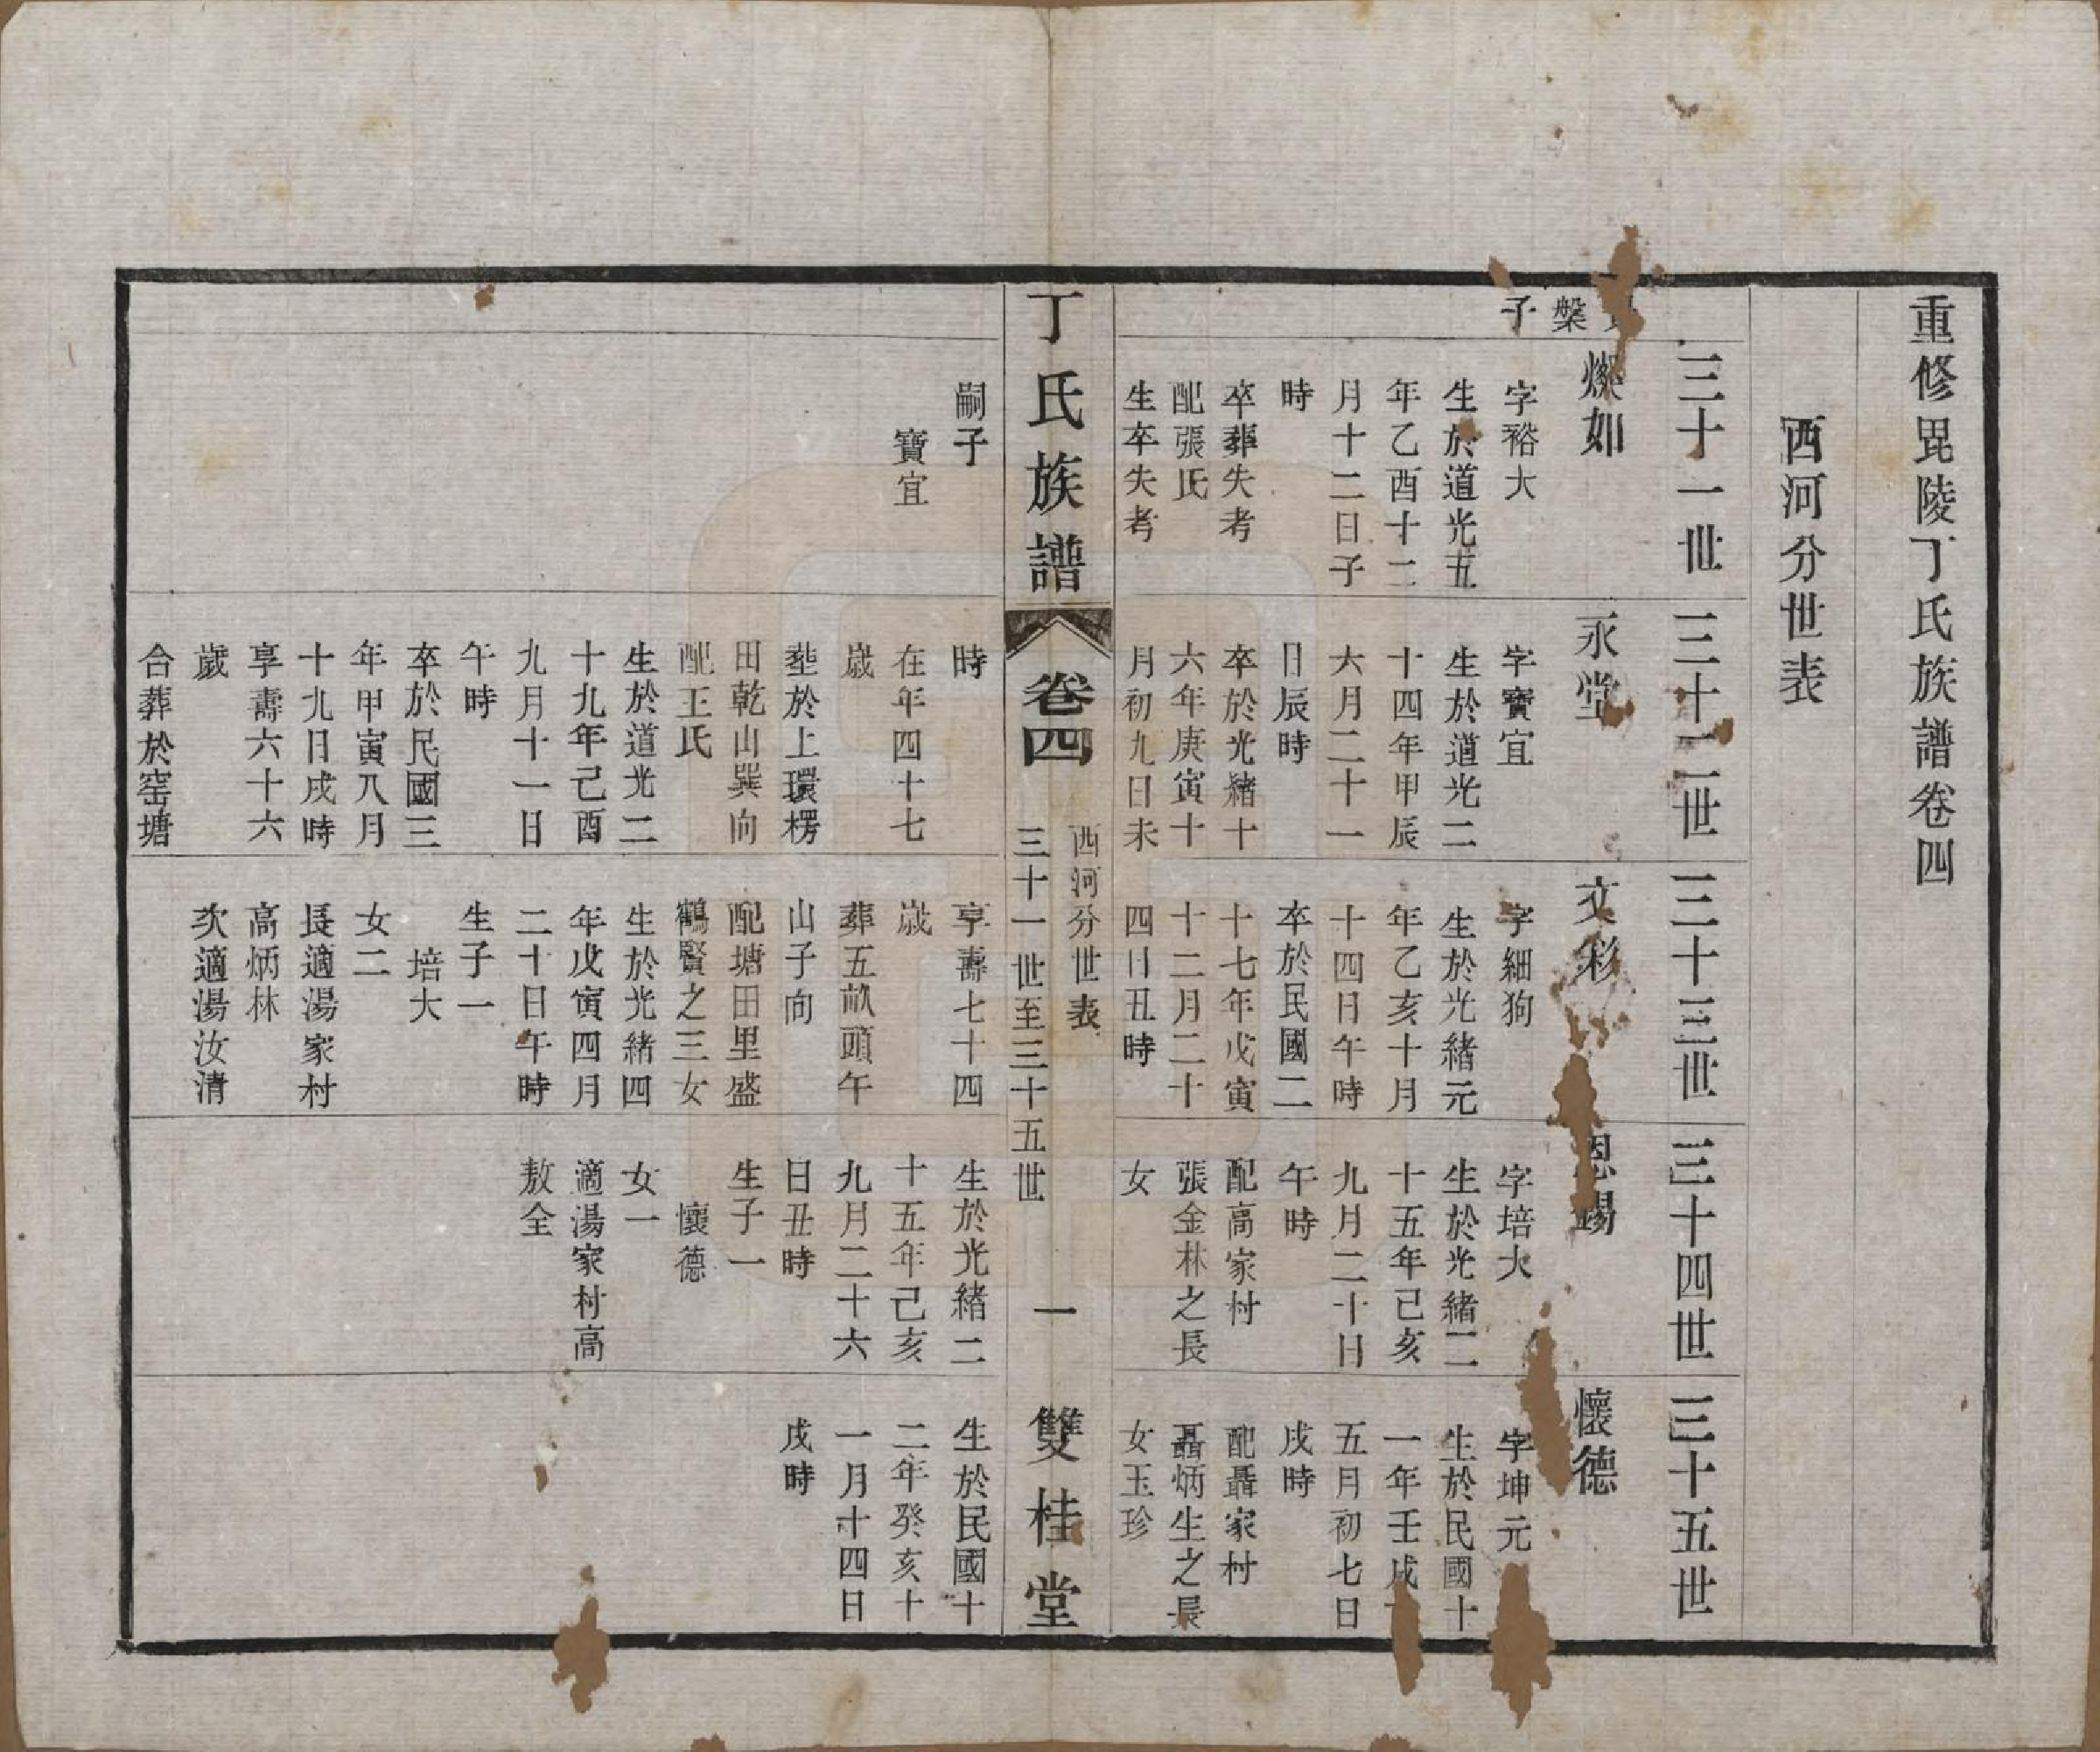 重修毘陵丁氏族譜卷四
西河分世表
三十一世
三十二世
三十三世
三十四世
三十五世
槃
子
燦如
字裕大
生於道光五
年乙酉十二
月十二日子
時
卒葬失考
配張氏
生卒失考
嗣子
寶宜
永堂
字寶宜
生於道光二
十四年甲辰
六月二十一
日辰時
卒於光緒十
六年庚寅十
月初九日未
時
在年四十七
歲
塟於上環楞
田乾山巽向
配王氏
生於道光二
十九年己酉
九月十一日
午時
卒於民國三
年甲寅八月
十九日戌時
享壽六十六
歲
合葬於窑塘
文彩
字細狗
生於光緒元
年乙亥十月
十四日午時
卒於民國二
十七年戊寅
十二月二十
四日丑時
享壽七十四
歲
葬五畝頭午
山子向
配塘田里盛
鶴賢之三女
生於光緒四
年戊寅四月
二十日午時
生子一
培大
女二
長適湯家村
高炳林
次適湯汝清
恩錫
字培大
生於光緒二
十五年己亥
九月二十日
午時
配高家村
張金林之長
女
生於光緒二
十五年己亥
九月二十六
日丑時
生子一
懷德
女一
適湯家村高
敖全
懷德
字坤元
生於民國十
一年壬戌
五月初七日
戌時
配聶家村
聶炳生之長
女玉珍
生於民國十
二年癸亥十
一月十四日
戌時
丁氏族譜
卷四
西河分世表
三十一世至三十五世
一
雙桂堂